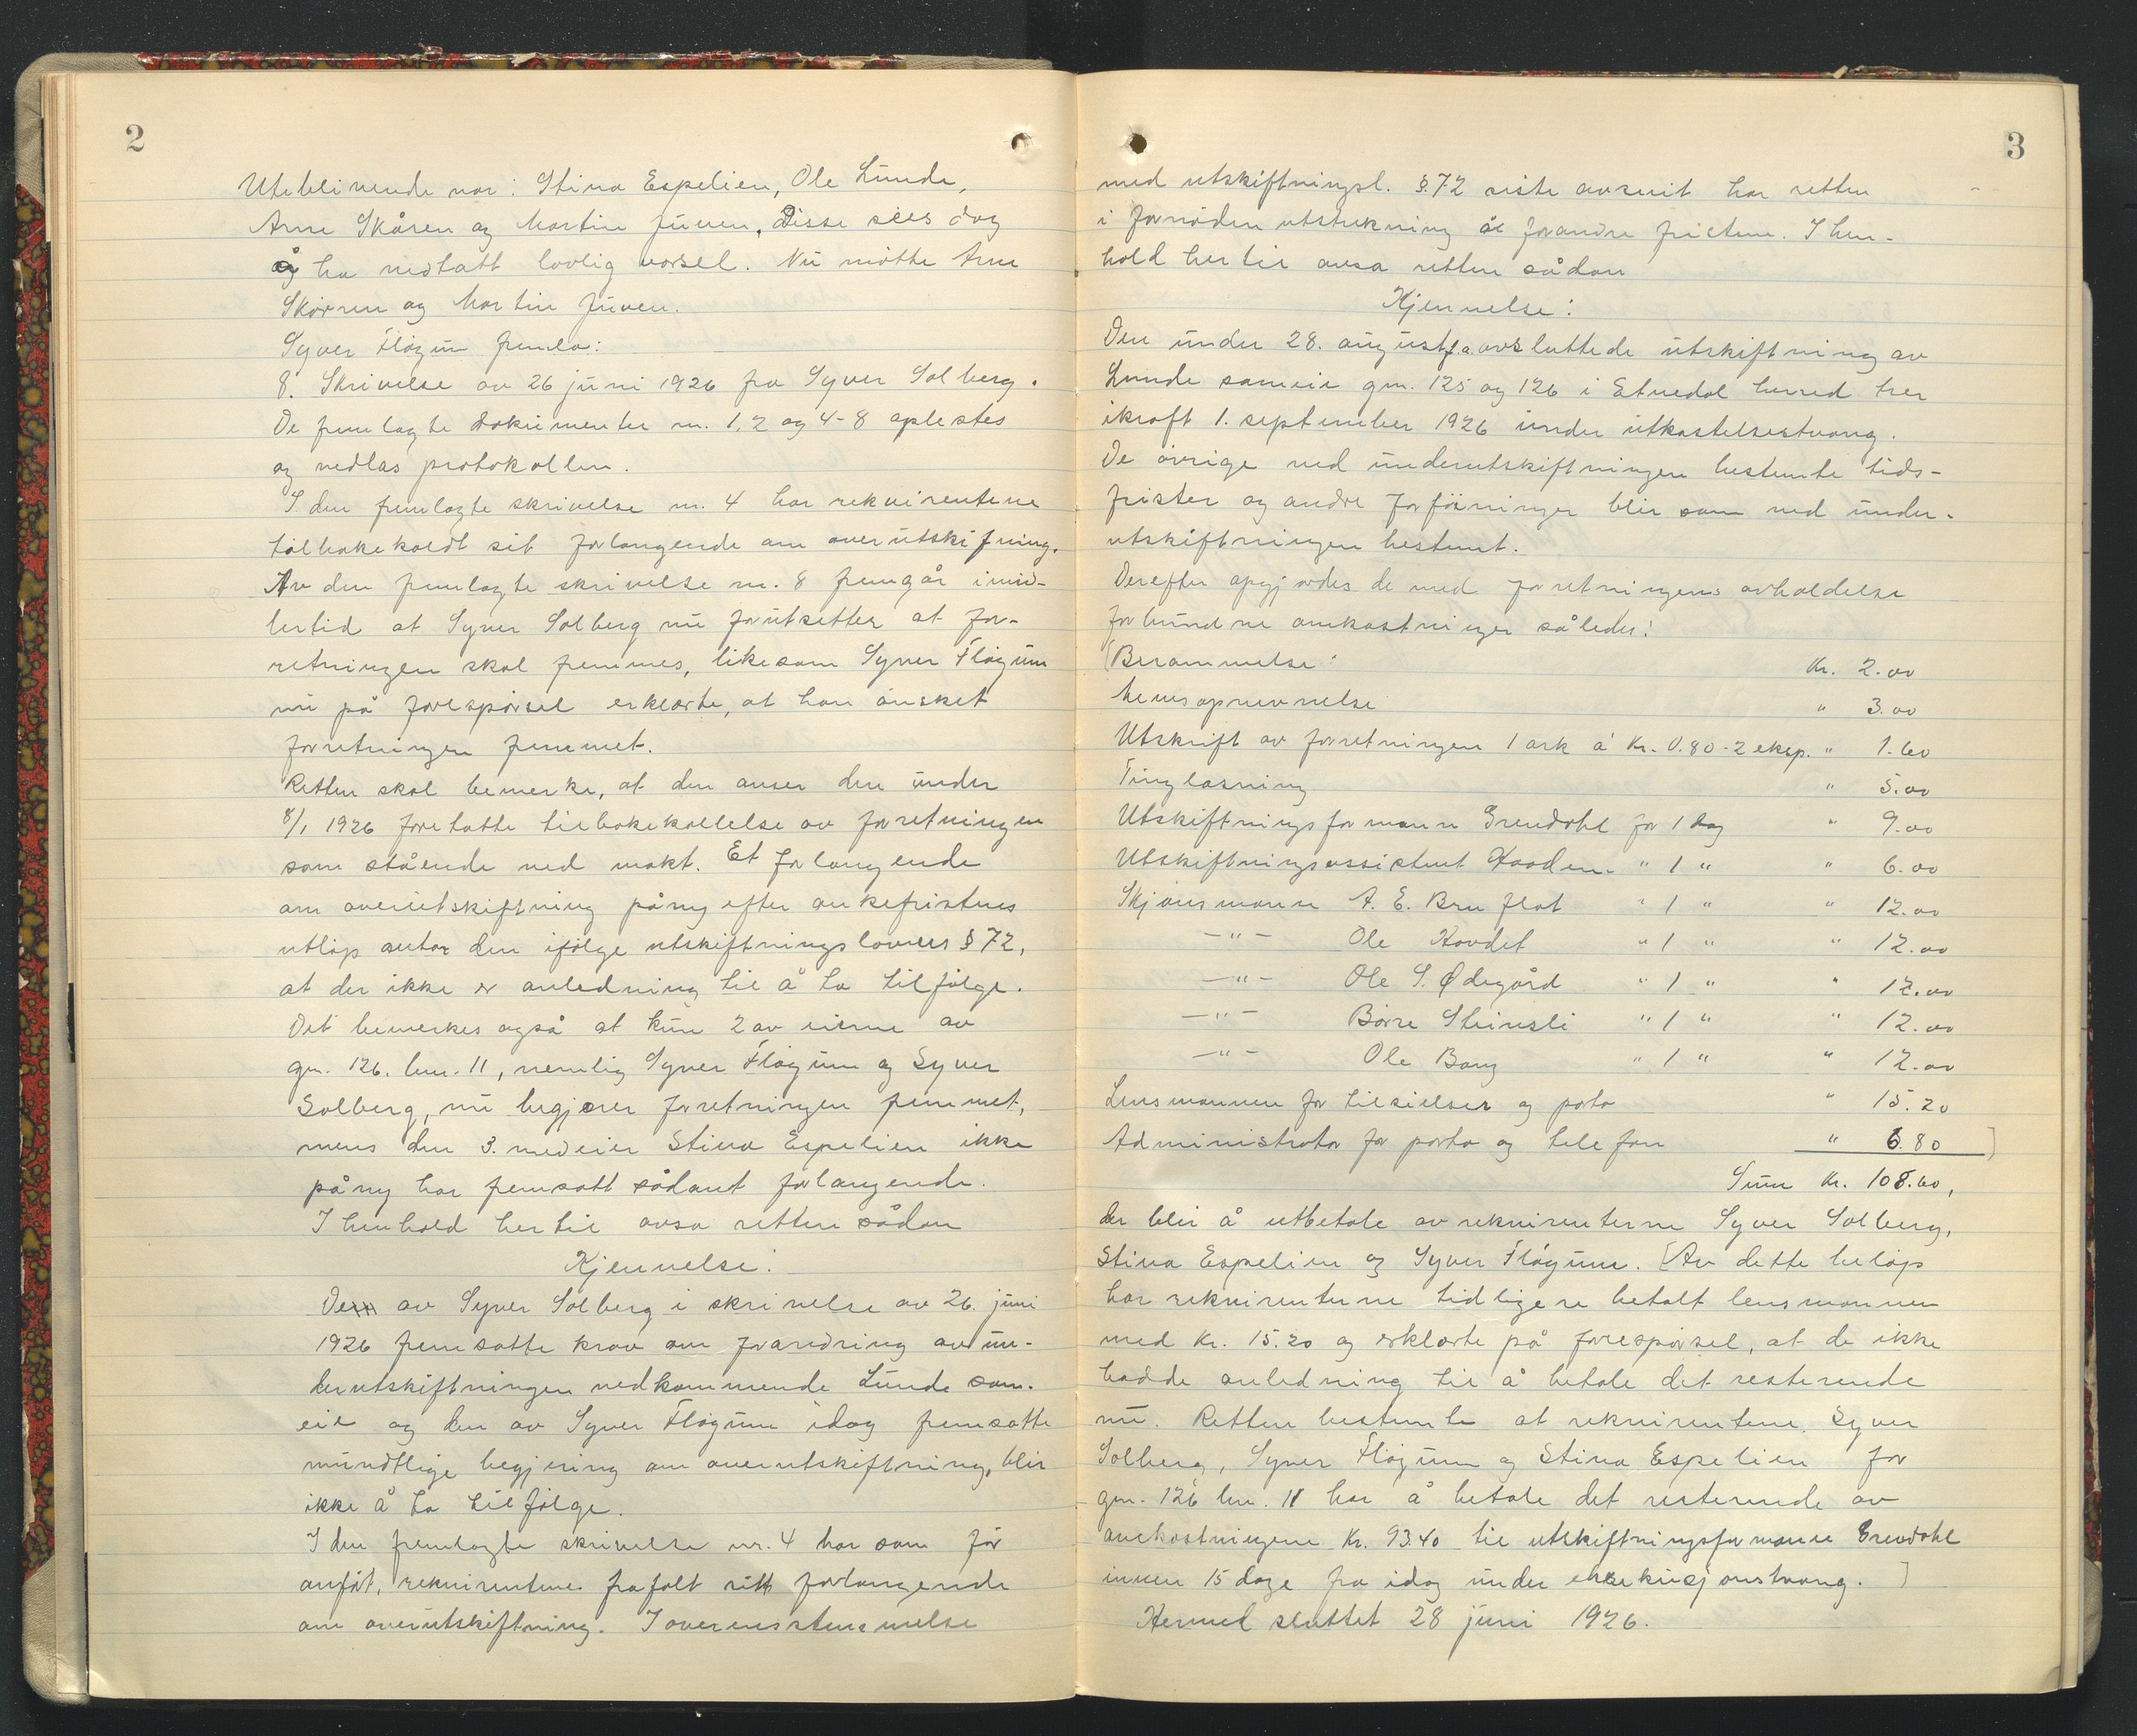 2
Uteblivende var: Stina Espelien, Ole Lunde,
Arne Skåren og Martin Juven. Disse sees dog
å ha vedtatt lovlig varsel. Nu møtte Arne
Skåren og Martin Juven.
Syver Fløgum fremla:
8. Skrivelse av 26 juni 1926 fra Syver Solberg.
De fremlagte dokumenter nr. 1, 2 og 4-8 oplestes
og vedlas protokollen.
I den fremlagte skrivelse nr. 4 har rekvirentene
tilbakekaldt sit forlangende om overutskifning.
Av den fremlagte skrivelse nr. 8 fremgår imid-
lertid at Syver Solberg nu forutsetter at for-
retningen skal fremmes, likesom Syver Fløgum
nu på forespørsel erklærte, at han ønsket
forretningen fremmet.
Retten skal bemerke, at den anser den under
8/1 1926 foretatte tilbakekallelse av forretningen
som stående ved makt. Et forlangende
om overutskiftning påny efter ankefristens
utløp antar den ifølge utskiftningslovens § 72,
at der ikke er anledning til å ta tilfølge.
Det bemerkes også at kun 2 av eierne av
gnr. 126. bnr. 11, nemlig Syver Fløgum og Syver
Solberg, nu begjærer forretningen fremmet,
mens den 3. medeier Stina Espelien ikke
påny har fremsatt sådant forlangende.
I henhold hertil avsa retten sådan
Kjennelse:
Det av Syver Solberg i skrivelse av 26. juni
1926 fremsatte krav om forandring av un-
derutskiftningen vedkommende Lunde sam-
eie og den av Syver Fløgum idag fremsatte
mundtlige begjering om overutskiftning, blir
ikke å ta tilfølge.
I den fremlagte skrivelse nr. 4 har som før
anført, rekvirentene frafalt sitt forlangende
om overutskiftning. I overensstemmelse
3
med utskiftningsl. §. 72 siste avsnit har retten
i fornøden utstrekning å forandre fristene. I hen-
hold hertil avsa retten sådan
Kjennelse:
Den under 28. august f.a. avsluttede utskiftning av
Lunde sameie gnr. 125 og 126 i Etnedal herred trer
ikraft 1. september 1926 under utkastelsestvang.
De øvrige ved underutskiftningen bestemte tids-
frister og andre forføininger blir som ved under-
utskiftningen bestemt.
Derefter opgjordes de med forretningens avholdelse
forbundne omkostninger således:
[Berammelse: Kr. 2.00
Menvsopnevnelse " 3.00
Utskrift av forretningen 1 ark á Kr. 0.80 - 2 eksp. " 1.60
Tinglæsning " 5.00
Utskiftningsformann Grendahl for 1 dag " 9.00
Utskiftningsassistent Haaden. " 1 " " 6.00
Skjønsmann A. E. Bruflat " 1 " " 12.00
-"- Ole Kovdet " 1 " " 12.00
-"- Ole S. Ødegård " 1 " " 12.00
-"- Børre Steinsli " 1 " " 12.00
-"- Ole Bang " 1 " " 12.00
Lensmannen for tilsielser og porto " 15.20
Administrator for porto og telefon " 6.80 ]
Sum Kr. 108.60,
der blir å utbetale av rekvirenterne Syver Solberg,
Stina Espelien og Syver Fløgum. [Av dette beløp
har rekvirenterne tidligere betalt lensmannen
med Kr. 15.20 og erklærte på forespørsel, at de ikke
hadde anledning til å betale det resterende
nu. Retten bestemte at rekvirentene Syver
Solberg, Syver Fløgum og Stina Espelien for
gnr. 126 bnr. 11 har å betale det resterende av
omkostningene Kr. 93.40 til utskiftningsformann Grendahl
innen 15 dage fra idag under eksekusjonstvang. ]
Hermed sluttet 28 juni 1926.